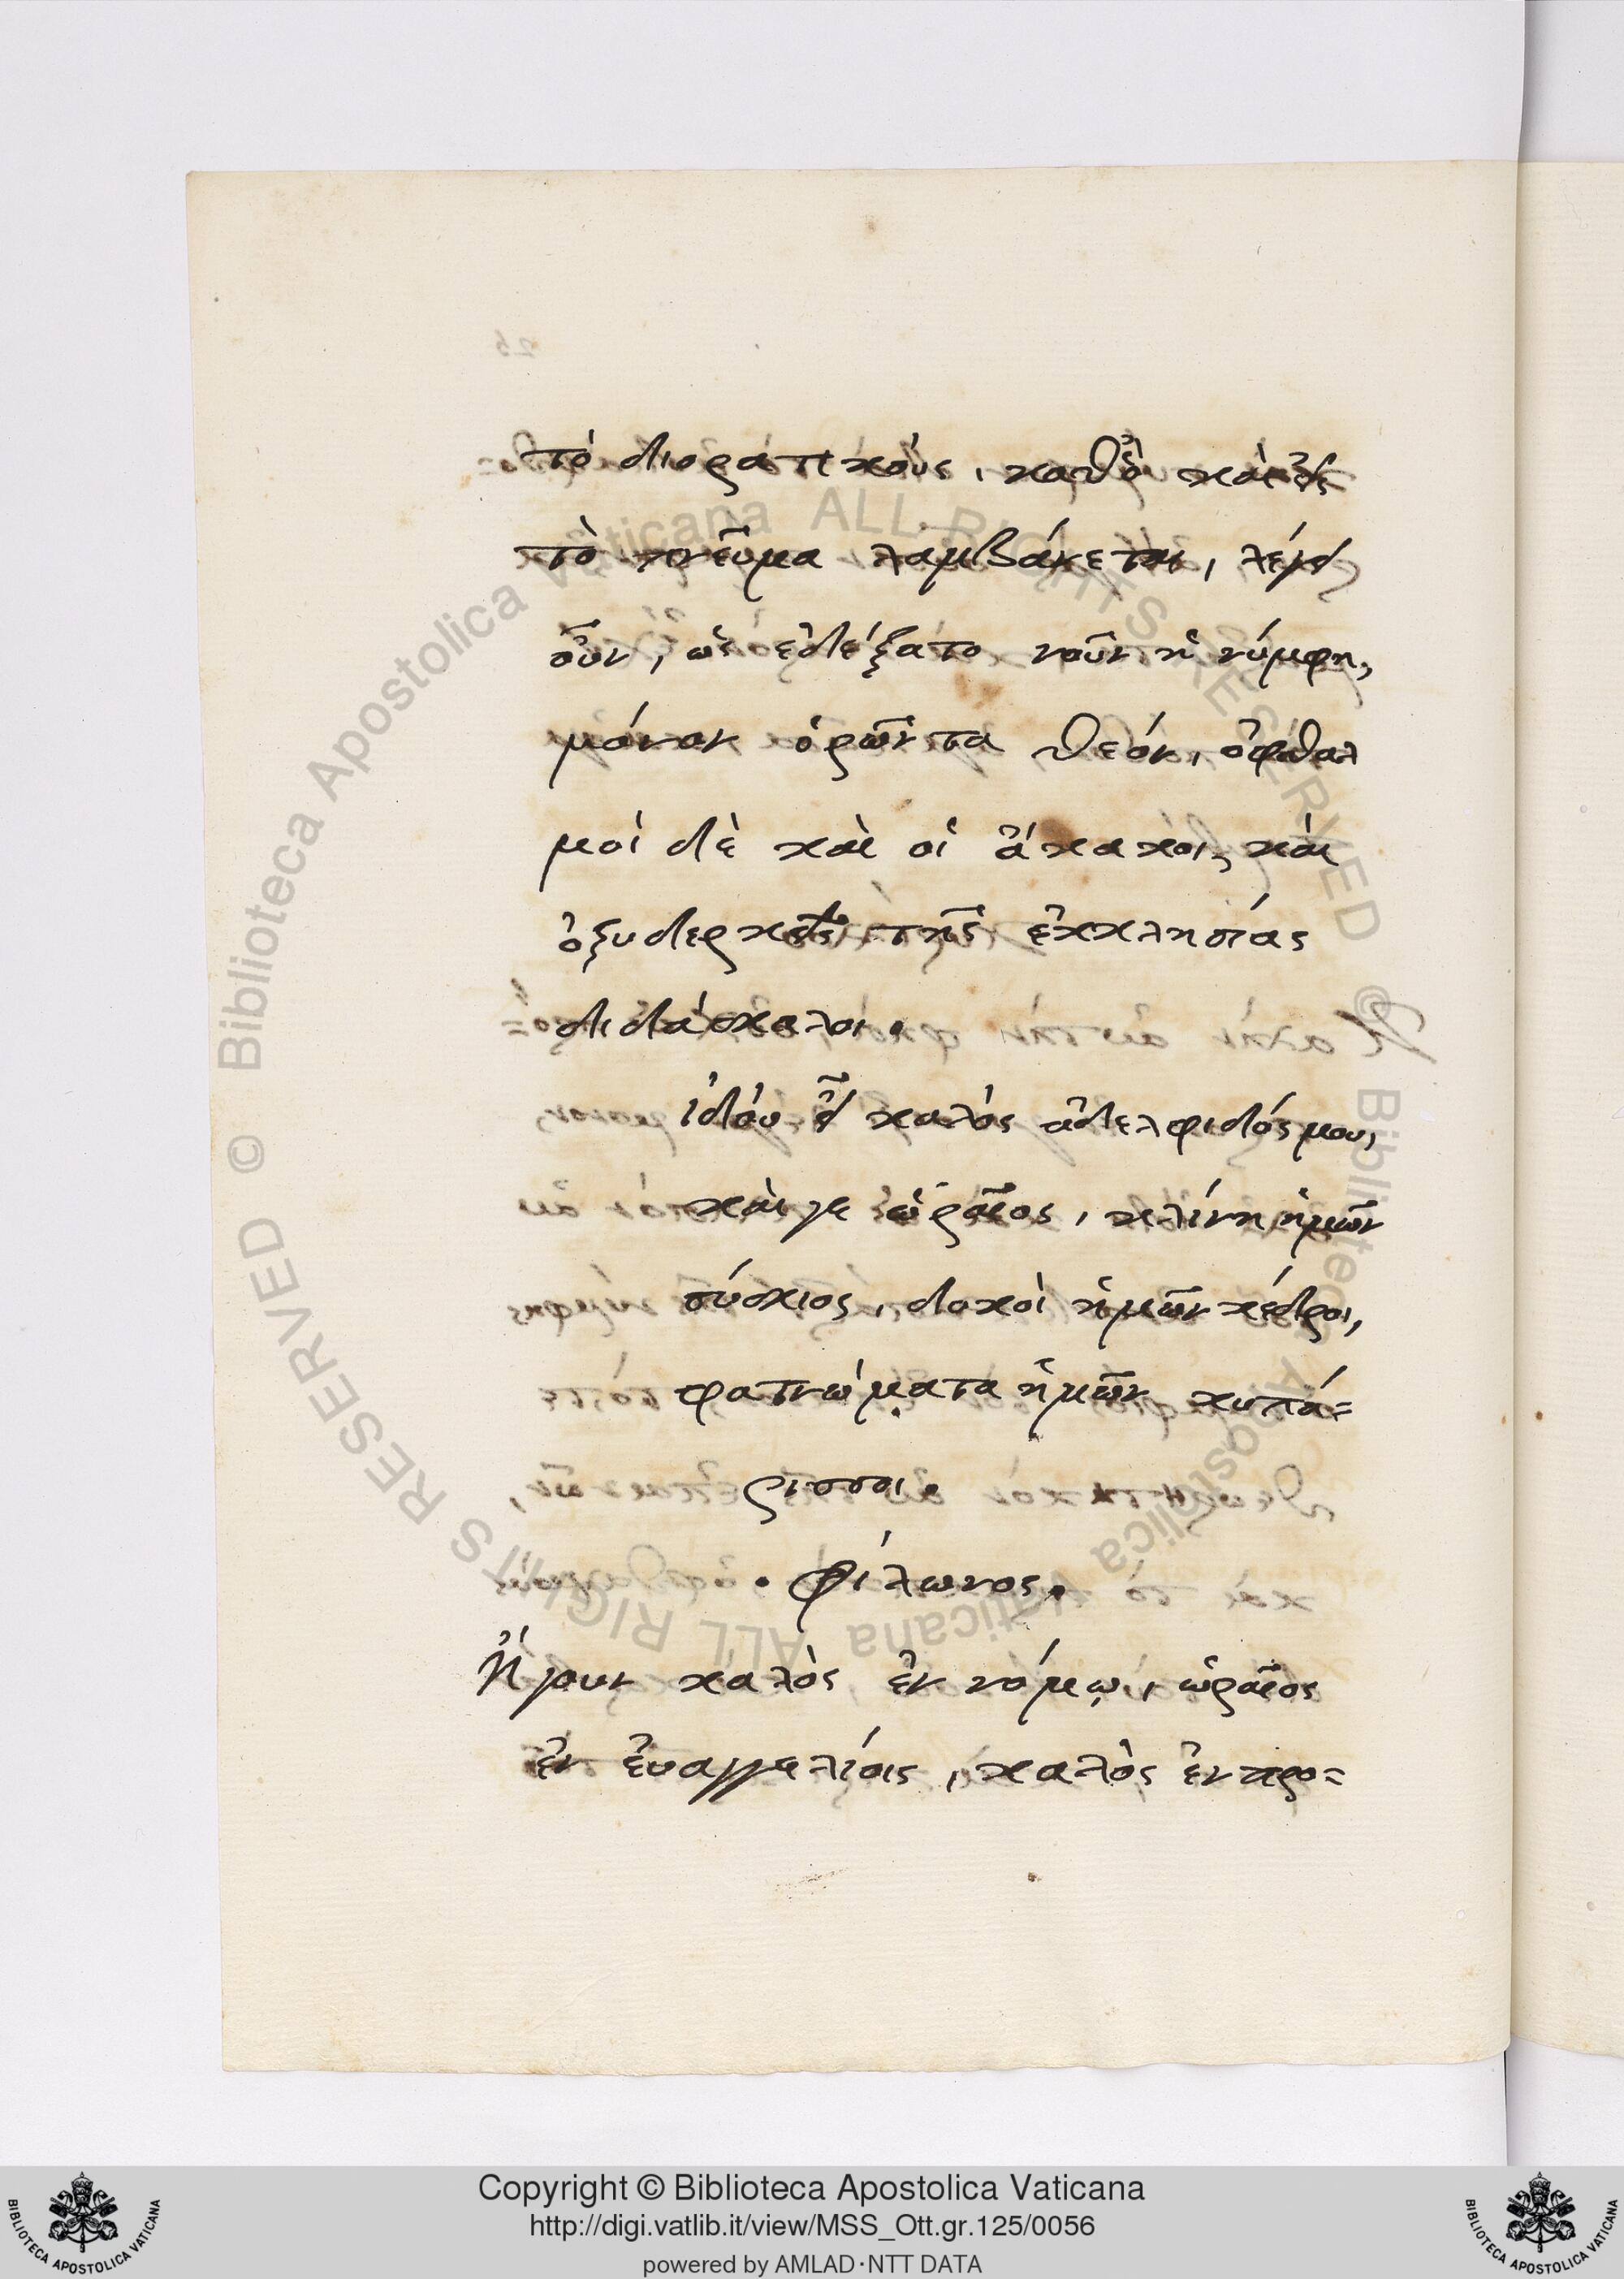 τὸ διορατικοὺς, καθὸ καὶ εἰς
τὸ πνεῦμα λαμβάνεται, λέγει
οὖν, ὡς ἐδέξατο νοῦν ἡ νύμφη,
μόνον ὁρῶντα θεόν, ὀφθαλ
μοὶ δὲ καὶ οἱ ἄκακοι, καὶ
ὀξυδερκεῖς τῆς ἐκκλησίας
διδάσκαλοι.
ἰδοὺ εἶ καλὸς ἀδελφιδός μου,
καίγε ὡραῖος, κλίνη ἡμῶν
σύσκιος, δοκοὶ ἡμῶν κέδροι,
φατνώματα ἡμῶν κυπά=
ρισσοι.
. Φίλωνος.
Ἤγουν καλὸς ἐν νόμῳ, ὡραῖος
ἐν ἐυαγγελίοις, καλὸς ἐν προ=
Copyright © Biblioteca Apostolica Vaticana
http://digi.vatlib.it/view/MSS_Ott.gr.125/0056
powered by AMLAD·NTT DATA
BIBLIOTECA APOSTOLICA VATICANA
BIBLIOTECA APOSTOLICA VATICANA
© Biblioteca Apostolica Vaticana ALL RIGHTS RESERVED
© Biblioteca Apostolica Vaticana ALL RIGHTS RESERVED